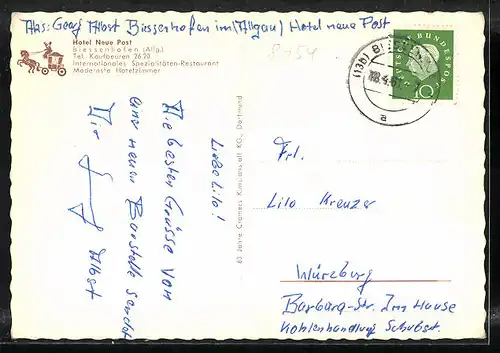 Abs: Georg Albst Biessenhofen im (Allgäu) Hotel neue Post
Hotel Neue Post
Biessenhofen (Allg.)
Tel. Kaufbeuren 2620
Internationales Spezialitäten-Restaurant
Modernste Hotelzimmer
DEUTSCHE BUNDESPOST
10
(13b) BIESSEN
a
63 Jahre Cramers Kunstanstalt KG., Dortmund
Liebe Lilo!
Die besten Grüsse von
einer neuen Baustelle sendet
Dir Georg Albst
Frl.
Lilo Kreuzer
Würzburg
Barbara-Str. Im Hause
Kohlenhandlung Schubert.